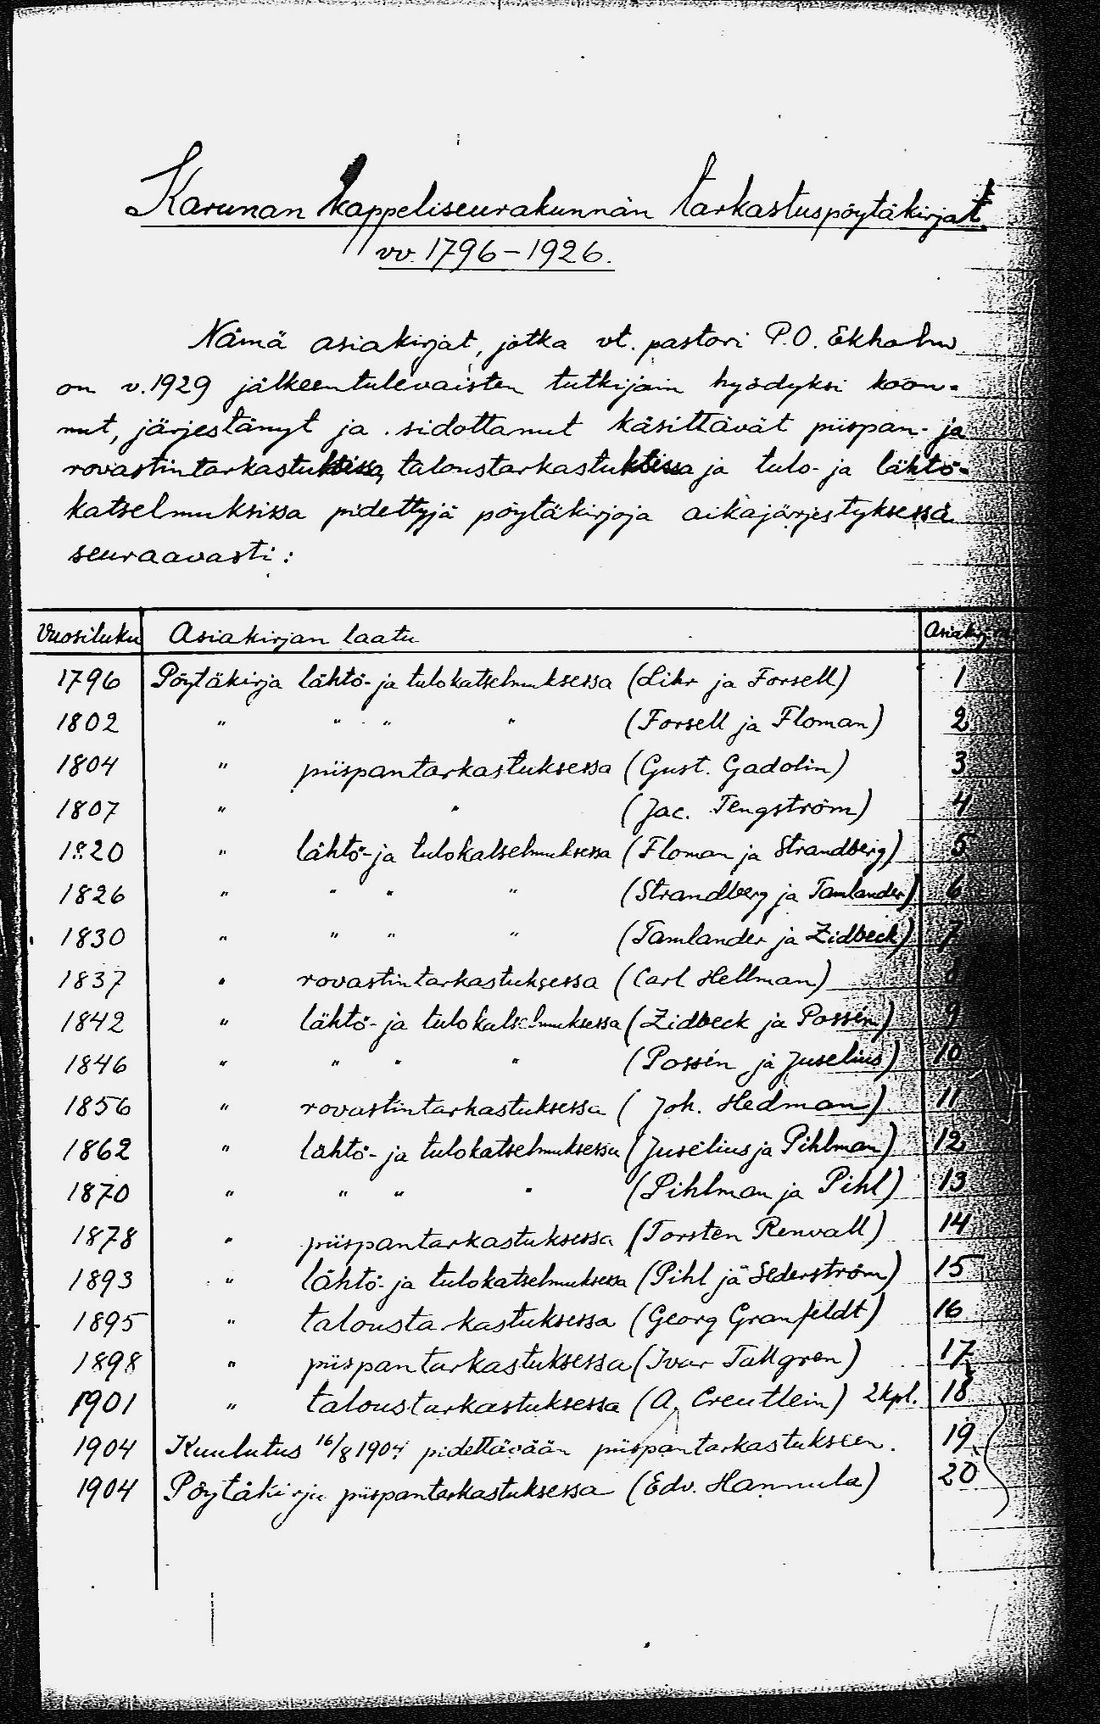 Karunan kappeliseurakunnan tarkastuspöytäkirjat
vv. 1796-1926.
Nämä asiakirjat, jotka vt. pastori P.O. Ekholm
on v.1929 jälkeentulevaisten tutkijain hyödyksi koon-
nut, järjestänyt ja sidottanut käsittävät piispan- ja
rovastintarkastuksissa, taloustarkastuksissa ja tulo- ja lähtö-
katselmuksissa pidettyjä pöytäkirjoja aikajärjestyksessä
seuraavasti:
Vuosiluku Asiakirjan laatu
1796 Pöytäkirja lähtö- ja tulokatselmuksessa (Lihr ja Forsell) 1
1802 " " " " (Forsell ja Floman) 2
1804 " piispantarkastuksessa (Gust. Gadolin) 3
1807 " " (Jac. Tengström) 4
1820 " lähtö- ja tulokatselmuksessa (Floman ja Strandberg) 5
1826 " " " " (Strandberg ja Tamlander) 6
1830 " " " " (Tamlander ja Zidbeck) 7
1837 " rovastintarkastuksessa (Carl Hellman) 8
1842 " lähtö- ja tulokatselmuksessa (Zidbeck ja Possén) 9
1846 " " " " (Possén ja Juselius) 10
1856 " rovastintarkastuksessa (Joh. Hedman) 11
1862 " lähtö- ja tulokatselmuksessa (Juselius ja Pihlman) 12
1870 " " " " (Pihlman ja Pihl) 13
1878 " piispantarkastuksessa (Torsten Renvall) 14
1893 " lähtö- ja tulokatselmuksessa (Pihl ja Sederström) 15
1895 " taloustarkastuksessa (Georg Granfeldt) 16
1898 " piispantarkastuksessa (Ivar Tallgren) 17
1901 " taloustarkastuksessa (A. Creutlein) 2kpl. 18
1904 Kuulutus 16/8 1904 pidettävään piispantarkastukseen. 19
1904 Pöytäkirja piispantarkastuksessa (Edv. Hannula) 20